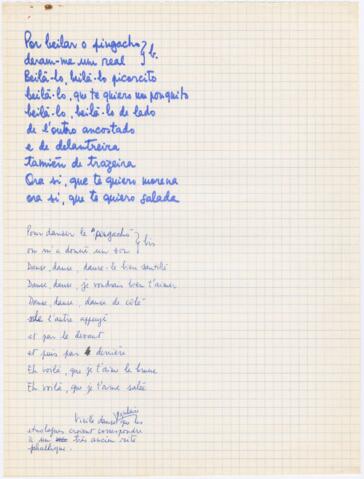 Por beilar o pingacho } b.
deram-me um real
Beilá-lo, beilá-lo picorcito
beilá-lo, que te quiero um ponquito
beilá-lo, beilá-lo de lado
de l'outro ancostado
e de delantreira
tamien de trazeira
Ora si, que te quiero morena
ora si, que te quiero salada
Pour danser le "pingacho" } bis
on m'a donné un sou
Danse, danse, danse-le bien
Danse, danse, je voudrais bien t'aimer
Danse, danse, danse de côté
de l'autre appuyé
et par le devant
et puis par derrière
Eh voilà, que je t'aime la brune
Eh voilà, que je t'aime salée
Vieille danse que les
etnologues croient correspondre
à un très ancien rite
phallique.